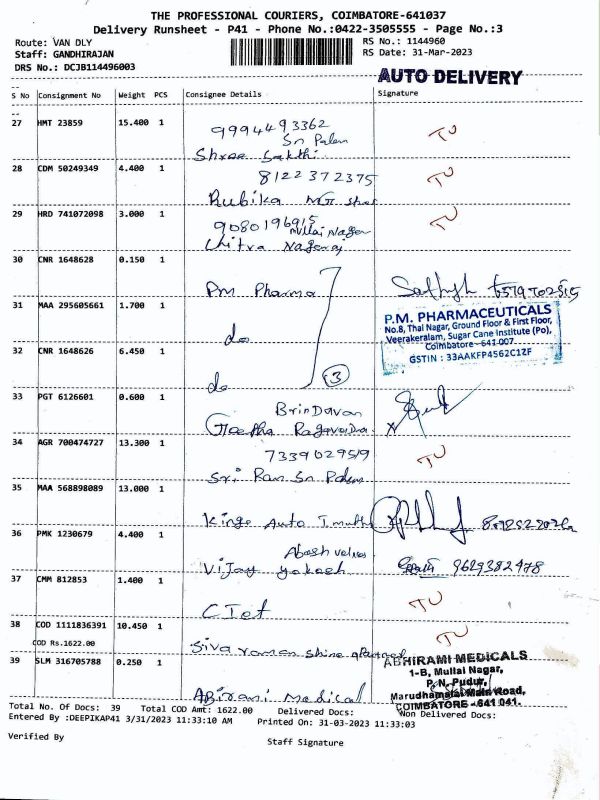 THE PROFESSIONAL COURIERS, COIMBATORE-641037
Delivery Runsheet - P41 - Phone No.:0422-3505555 - Page No.:3
Route: VAN DLY
RS No.: 1144960
Staff: GANDHIRAJAN
RS Date: 31-Mar-2023
DRS No.: DCJB114496003
AUTO DELIVERY
S No Consignment No Weight PCS Consignee Details Signature
27 HMT 23859 15.400 1
9994493362
Sn Palem
Shree Sakthi
TU
28 CDM 50249349 4.400 1
8122372375
Rubika MGR
TU
29 HRD 741072098 3.000 1
9080196915
Mullai Nagar
Chitra Nagaraj
TU
30 CNR 1648628 0.150 1
Pm Pharma
31 MAA 295605661 1.700 1
do
P.M. PHARMACEUTICALS
No.8, Thai Nagar, Ground Floor & First Floor,
Veerakeralam, Sugar Cane Institute (Po),
Coimbatore - 641 007.
GSTIN : 33AAKFP4562C1ZF
32 CNR 1648626 6.450 1
do
3
33 PGT 6126601 0.600 1
Brindavan
Geetha
34 AGR 700474727 13.300 1
7339029519
Sri Ram Sn Palem
TU
35 MAA 568898089 13.000 1
Kings Auto
36 PMK 1230679 4.400 1
Vijay
9629382478
37 CMM 812853 1.400 1
CIet
TU
38 COD 1111836391 10.450 1
COD Rs.1622.00
Sivaraman Shine
TU
39 SLM 316705788 0.250 1
Abirami Medical
ABHIRAMI MEDICALS
1-B, Mullai Nagar,
P. N. Pudur,
Marudhamalai Main Road,
COIMBATORE - 641 041.
Total No. Of Docs: 39 Total COD Amt: 1622.00 Delivered Docs: Non Delivered Docs:
Entered By :DEEPIKAP41 3/31/2023 11:33:10 AM Printed On: 31-03-2023 11:33:03
Verified By
Staff Signature